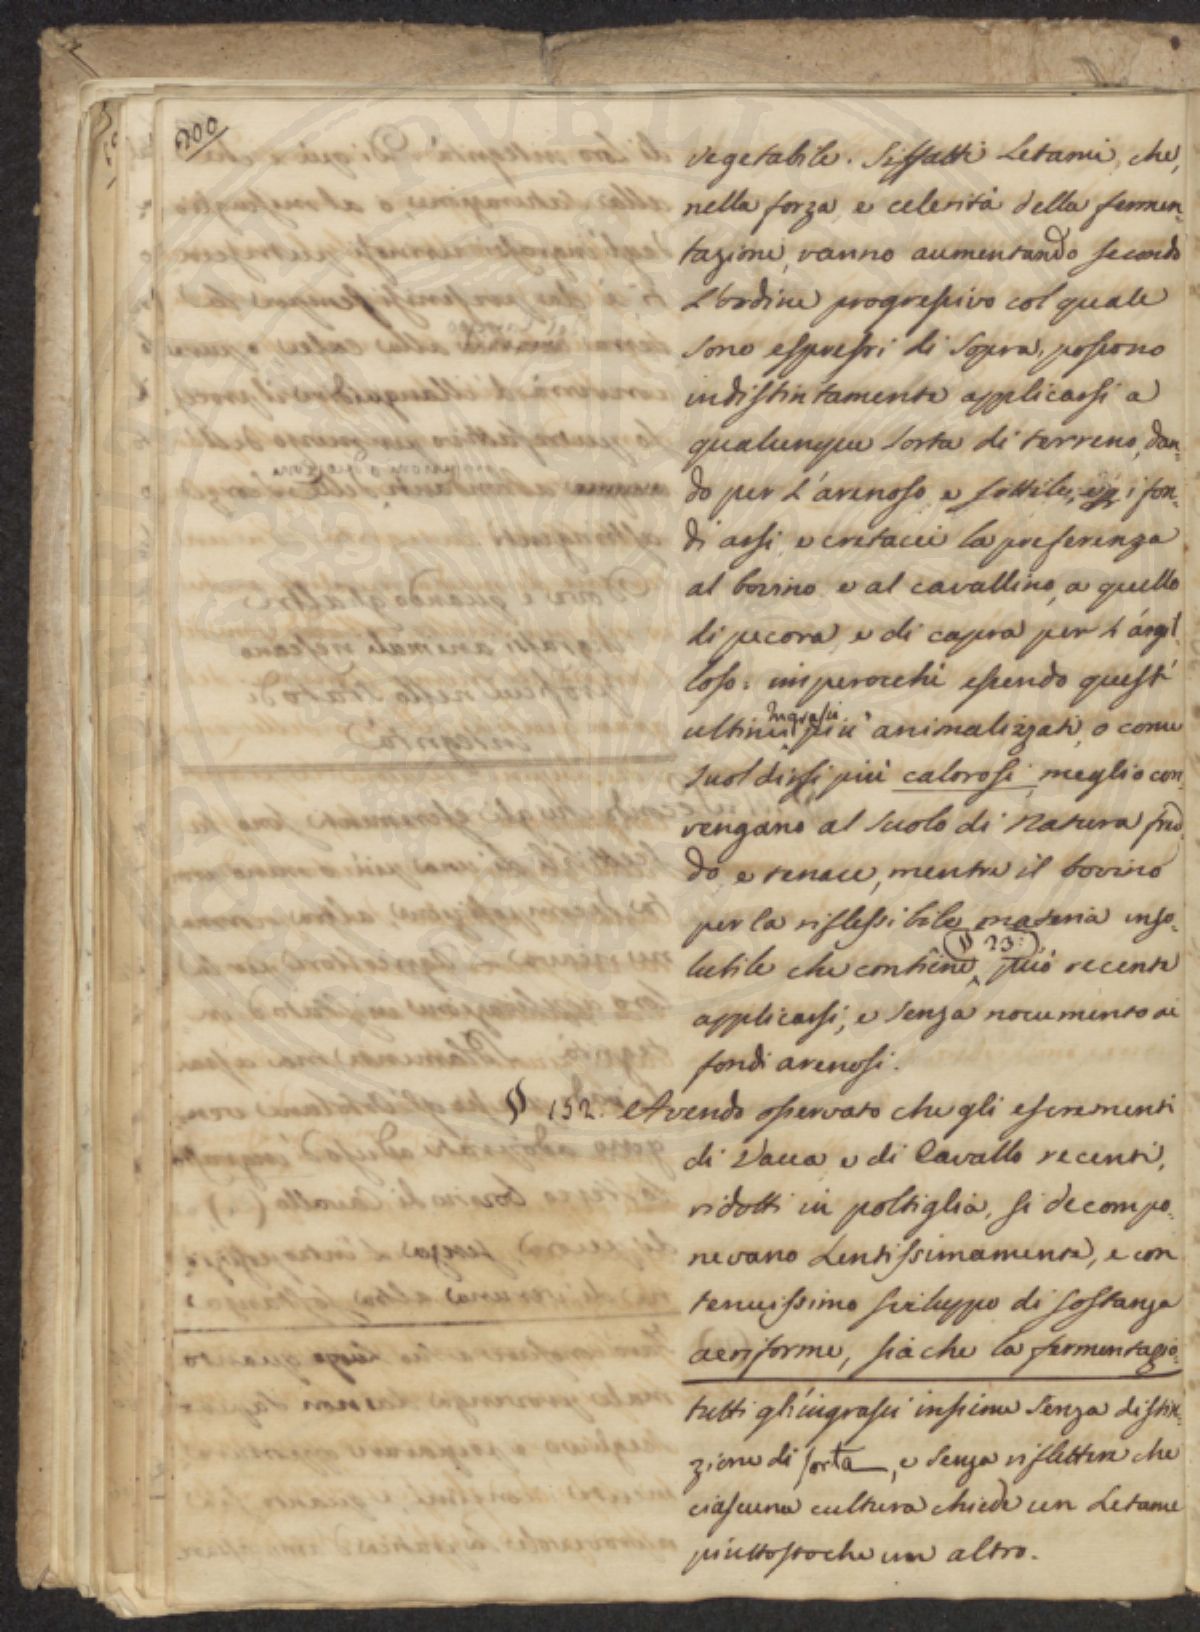 200
vegetabile. Siffatti Letami, che,
nella forza, e celerità della fermen-
tazione, vanno aumentando secondo
L'ordine progressivo col quale
sono espressi di sopra, possono
indistintamente applicarsi a
qualunque sorta di terreno, dan-
do per l'arenoso, e sottile, i fon-
di assi, e cretacei la preferenza
al bovino, e al cavallino, a quello
di pecora, e di capra per l'argil-
loso: imperocchè essendo questi
Ingrassi
ultimi più animalizzati, o come
suol dirsi più calorosi, meglio con-
vengano al suolo di natura fred-
do, e tenace, mentre il bovino
per la riflessibile materia inso-
(§ 23:)
lubile che contiene, può recente
applicarsi, e senza nocumento ai
fondi arenosi.
§ 152. Avendo osservato che gli escrementi
di Vacca, e di Cavallo recenti,
ridotti in poltiglia, si decompo-
nevano Lentissimamente, e con
tenuissimo sviluppo di sostanza
aeriforme, sia che la fermentazio-
tutti gl'ingrassi insieme senza distin-
zione di sorta, e senza riflettere che
ciascuna cultura chiede un Letame
piuttosto che un altro.